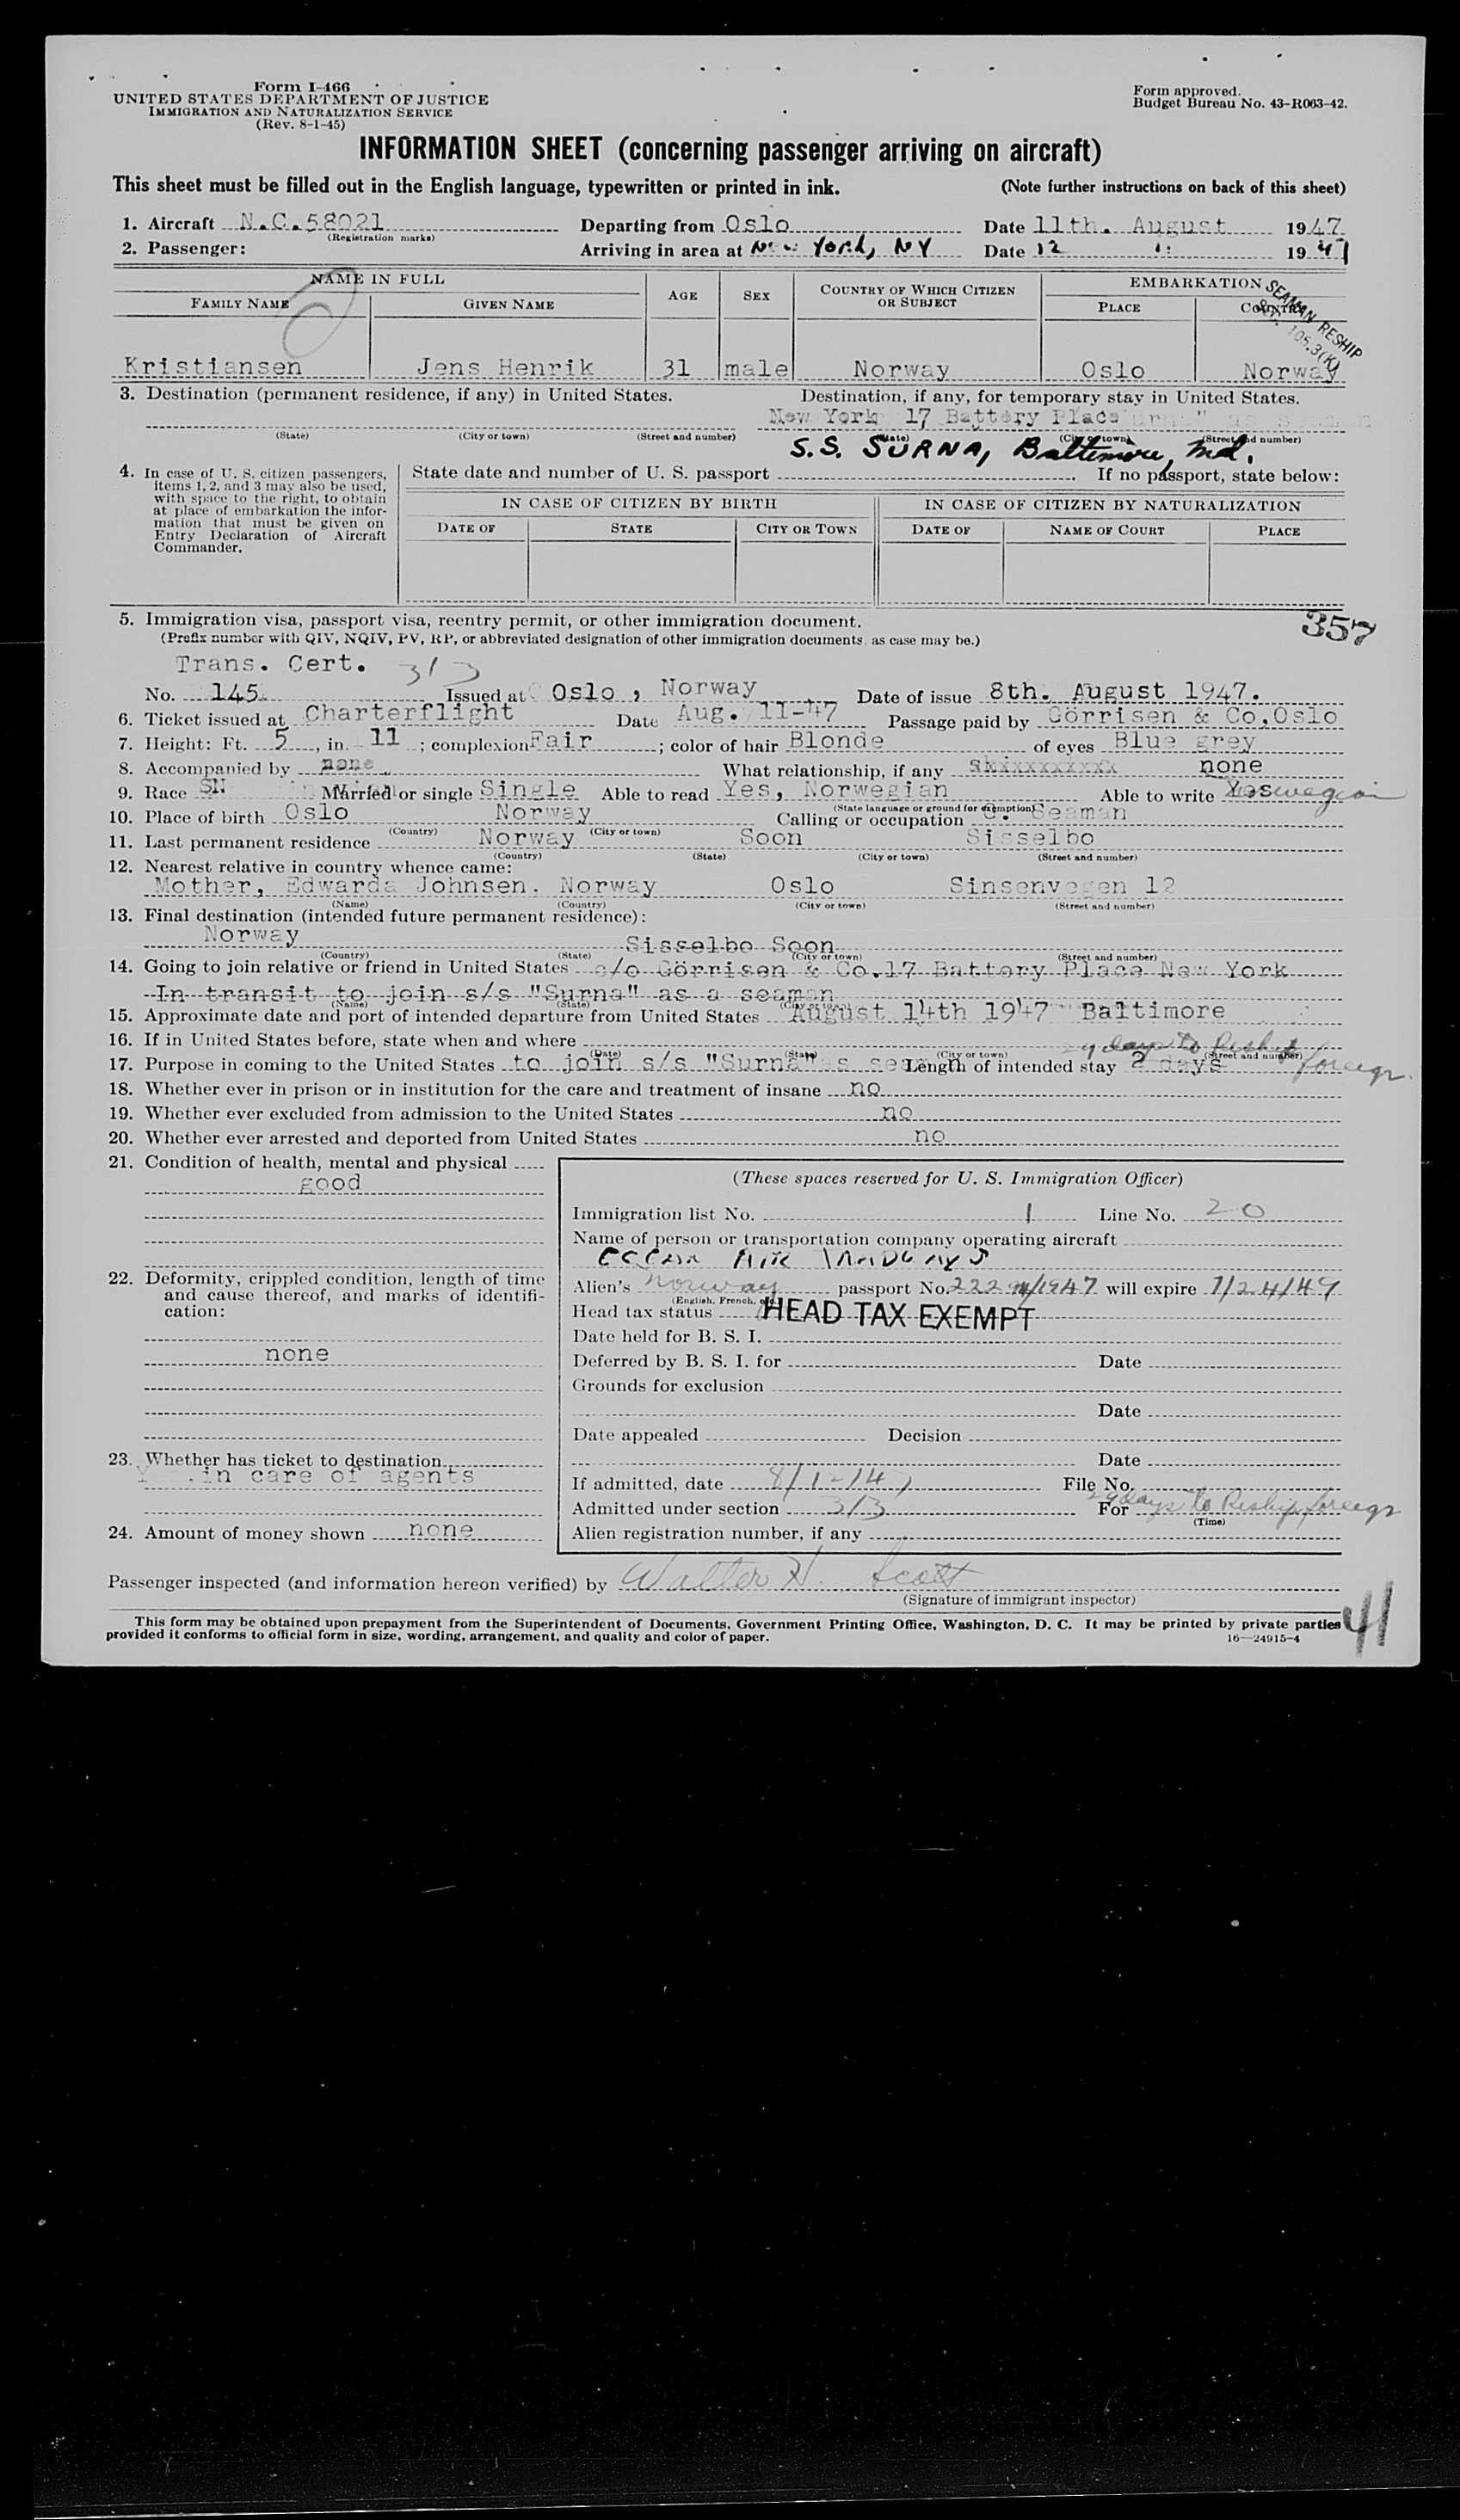 Form I-466
UNITED STATES DEPARTMENT OF JUSTICE
IMMIGRATION AND NATURALIZATION SERVICE
(Rev. 8-1-45)
Form approved.
Budget Bureau No. 43-R063-42.
INFORMATION SHEET (concerning passenger arriving on aircraft)
This sheet must be filled out in the English language, typewritten or printed in ink. (Note further instructions on back of this sheet)
1. Aircraft N.C.58021 Departing from Oslo Date 11th. August 1947
(Registration marks)
2. Passenger: Arriving in area at New York, NY Date 12 1947
NAME IN FULL AGE SEX COUNTRY OF WHICH CITIZEN OR SUBJECT EMBARKATION
FAMILY NAME GIVEN NAME PLACE COUNTRY
SEAMAN RESHIP
SEC. 105.3(K)
Kristiansen Jens Henrik 31 male Norway Oslo Norway
3. Destination (permanent residence, if any) in United States. Destination, if any, for temporary stay in United States.
New York 17 Battery Place
(State) (City or town) (Street and number) (State) (City or town) (Street and number)
S.S. SURNA, Baltimore, Md.
4. In case of U. S. citizen passengers, items 1, 2, and 3 may also be used, with space to the right, to obtain at place of embarkation the information that must be given on Entry Declaration of Aircraft Commander.
State date and number of U. S. passport If no passport, state below:
IN CASE OF CITIZEN BY BIRTH IN CASE OF CITIZEN BY NATURALIZATION
DATE OF STATE CITY OR TOWN DATE OF NAME OF COURT PLACE
5. Immigration visa, passport visa, reentry permit, or other immigration document. 357
(Prefix number with QIV, NQIV, PV, RP, or abbreviated designation of other immigration documents, as case may be.)
Trans. Cert. 3/3
No. 145. Issued at Oslo , Norway Date of issue 8th. August 1947.
6. Ticket issued at Charterflight Date Aug. 11-47 Passage paid by Görrisen & Co.Oslo
7. Height: Ft. 5, in. 11; complexion Fair; color of hair Blonde of eyes Blue grey
8. Accompanied by none What relationship, if any none
9. Race Married or single Single Able to read Yes, Norwegian Able to write Yes
(State language or ground for exemption)
10. Place of birth Oslo Norway Calling or occupation Seaman
(Country) (City or town)
11. Last permanent residence Norway Soon Sisselbo
(Country) (State) (City or town) (Street and number)
12. Nearest relative in country whence came:
Mother, Edwarda Johnsen. Norway Oslo Sinsenvegen 12
(Name) (Country) (City or town) (Street and number)
13. Final destination (intended future permanent residence):
Norway Sisselbo Soon
(Country) (State) (City or town) (Street and number)
14. Going to join relative or friend in United States c/o Görrisen & Co.17 Battery Place New York
In transit to join s/s "Surna" as a seaman
(Name) (State) (City or town)
15. Approximate date and port of intended departure from United States August 14th 1947 Baltimore
16. If in United States before, state when and where
(Date) (State) (City or town) (Street and number)
29 days to Reship foreign
17. Purpose in coming to the United States to join s/s "Surna" as seaman Length of intended stay 2 days
18. Whether ever in prison or in institution for the care and treatment of insane no
19. Whether ever excluded from admission to the United States no
20. Whether ever arrested and deported from United States no
21. Condition of health, mental and physical
good
22. Deformity, crippled condition, length of time and cause thereof, and marks of identification:
none
23. Whether has ticket to destination
in care of agents
24. Amount of money shown none
(These spaces reserved for U. S. Immigration Officer)
Immigration list No. 1 Line No. 20
Name of person or transportation company operating aircraft
Alien's Norway passport No. will expire 7/24/49
(English, French, etc.)
Head tax status HEAD TAX EXEMPT
Date held for B. S. I.
Deferred by B. S. I. for Date
Grounds for exclusion
Date
Date appealed Decision
Date
If admitted, date File No.
Admitted under section 3/3 For 29 days to Reship foreign
(Time)
Alien registration number, if any
Passenger inspected (and information hereon verified) by Walter H. Scott
(Signature of immigrant inspector)
This form may be obtained upon prepayment from the Superintendent of Documents, Government Printing Office, Washington, D. C. It may be printed by private parties
provided it conforms to official form in size, wording, arrangement, and quality and color of paper. 16—24915-4
41